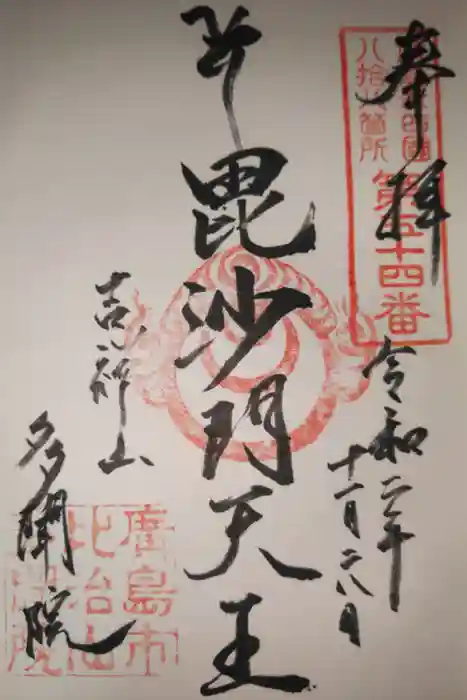 奉拝
八拾八箇所
第五十四番
令和二年
十一月二八日
毘沙門天王
吉祥山
多聞院
廣島市
比治山